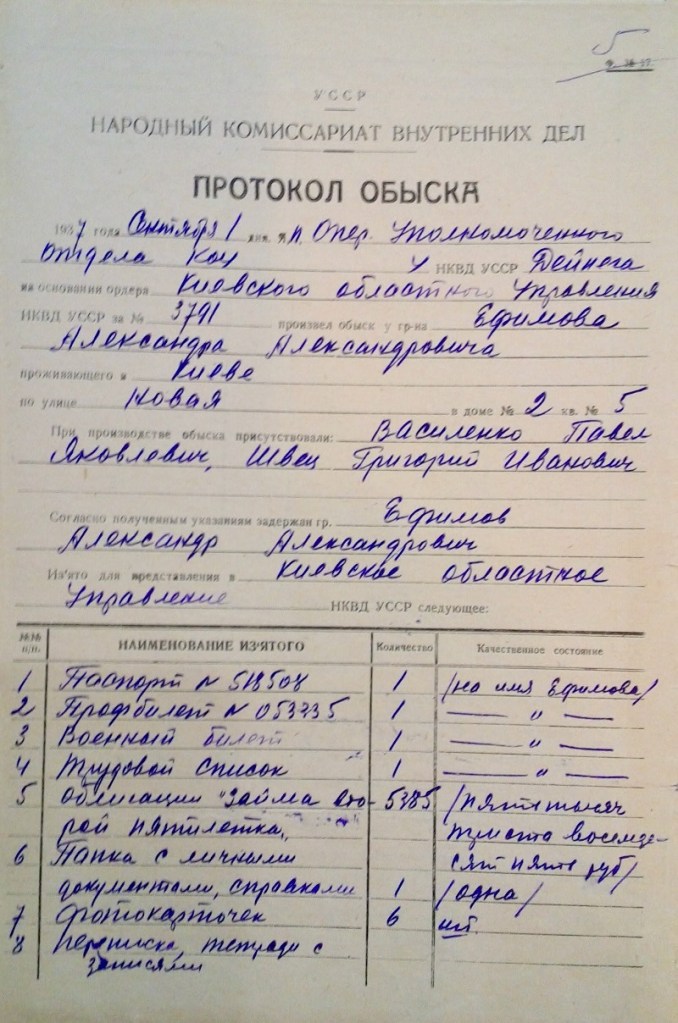 5
УССР
НАРОДНЫЙ КОМИССАРИАТ ВНУТРЕННИХ ДЕЛ
ПРОТОКОЛ ОБЫСКА
1937 года Сентября 1 дня. Я, п. Опер. Уполномоченного
отдела КОУ НКВД УССР Дейнега
на основании ордера Киевского областного Управления
НКВД УССР за № 3791 произвел обыск у гр-на Ефимова
Александра Александровича
проживающего в Киеве
по улице Новая в доме № 2 кв. № 5
При производстве обыска присутствовали: Василенко Павел
Яковлевич, Швец Григорий Иванович
Согласно полученным указаниям задержан гр. Ефимов
Александр Александрович
Из'ято для представления в Киевское областное
Управление НКВД УССР следующее:
№№ п/п. НАИМЕНОВАНИЕ ИЗ'ЯТОГО Количество Качественное состояние
1 Паспорт № 518508 1 /на имя Ефимова/
2 Профбилет № 053735 1 — " —
3 Военный билет 1 — " —
4 Трудовой список 1 — " —
5 Облигации "Займа вто- 5385 /пять тысяч
рой пятилетки" триста восемде-
6 Папка с личными сят пять руб/
документами, справками 1 /одна/
7 Фотокарточек 6 шт.
8 Переписка, тетради с
записями